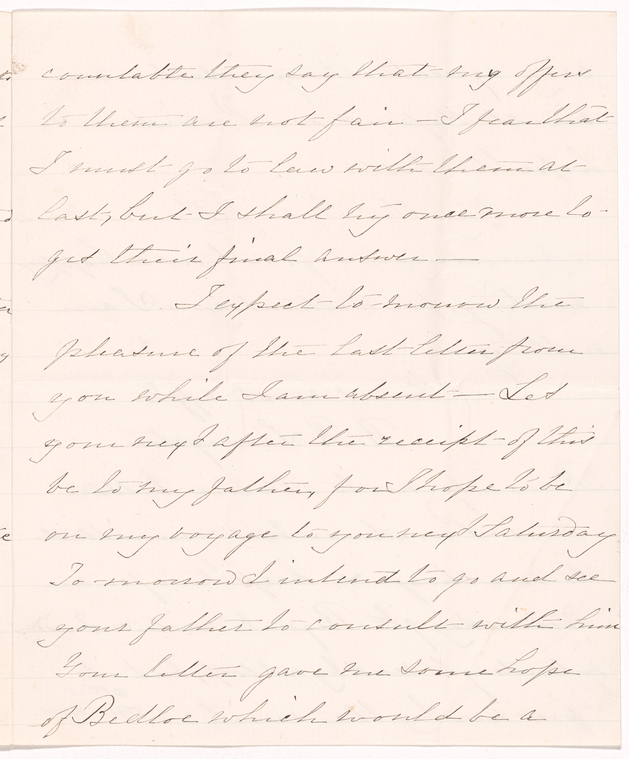 countable they say that my offers
to them are not fair — I fear that
I must go to law with them at
last, but I shall try once more to
get their final answer —
I expect to-morrow the
pleasure of the last letter from
you while I am absent — Let
your next after the receipt of this
be to my father, for I hope to be
on my voyage to you next Saturday
To-morrow I intend to go and see
your father to consult with him
Your letter gave me some hope
of Bedloe which would be a